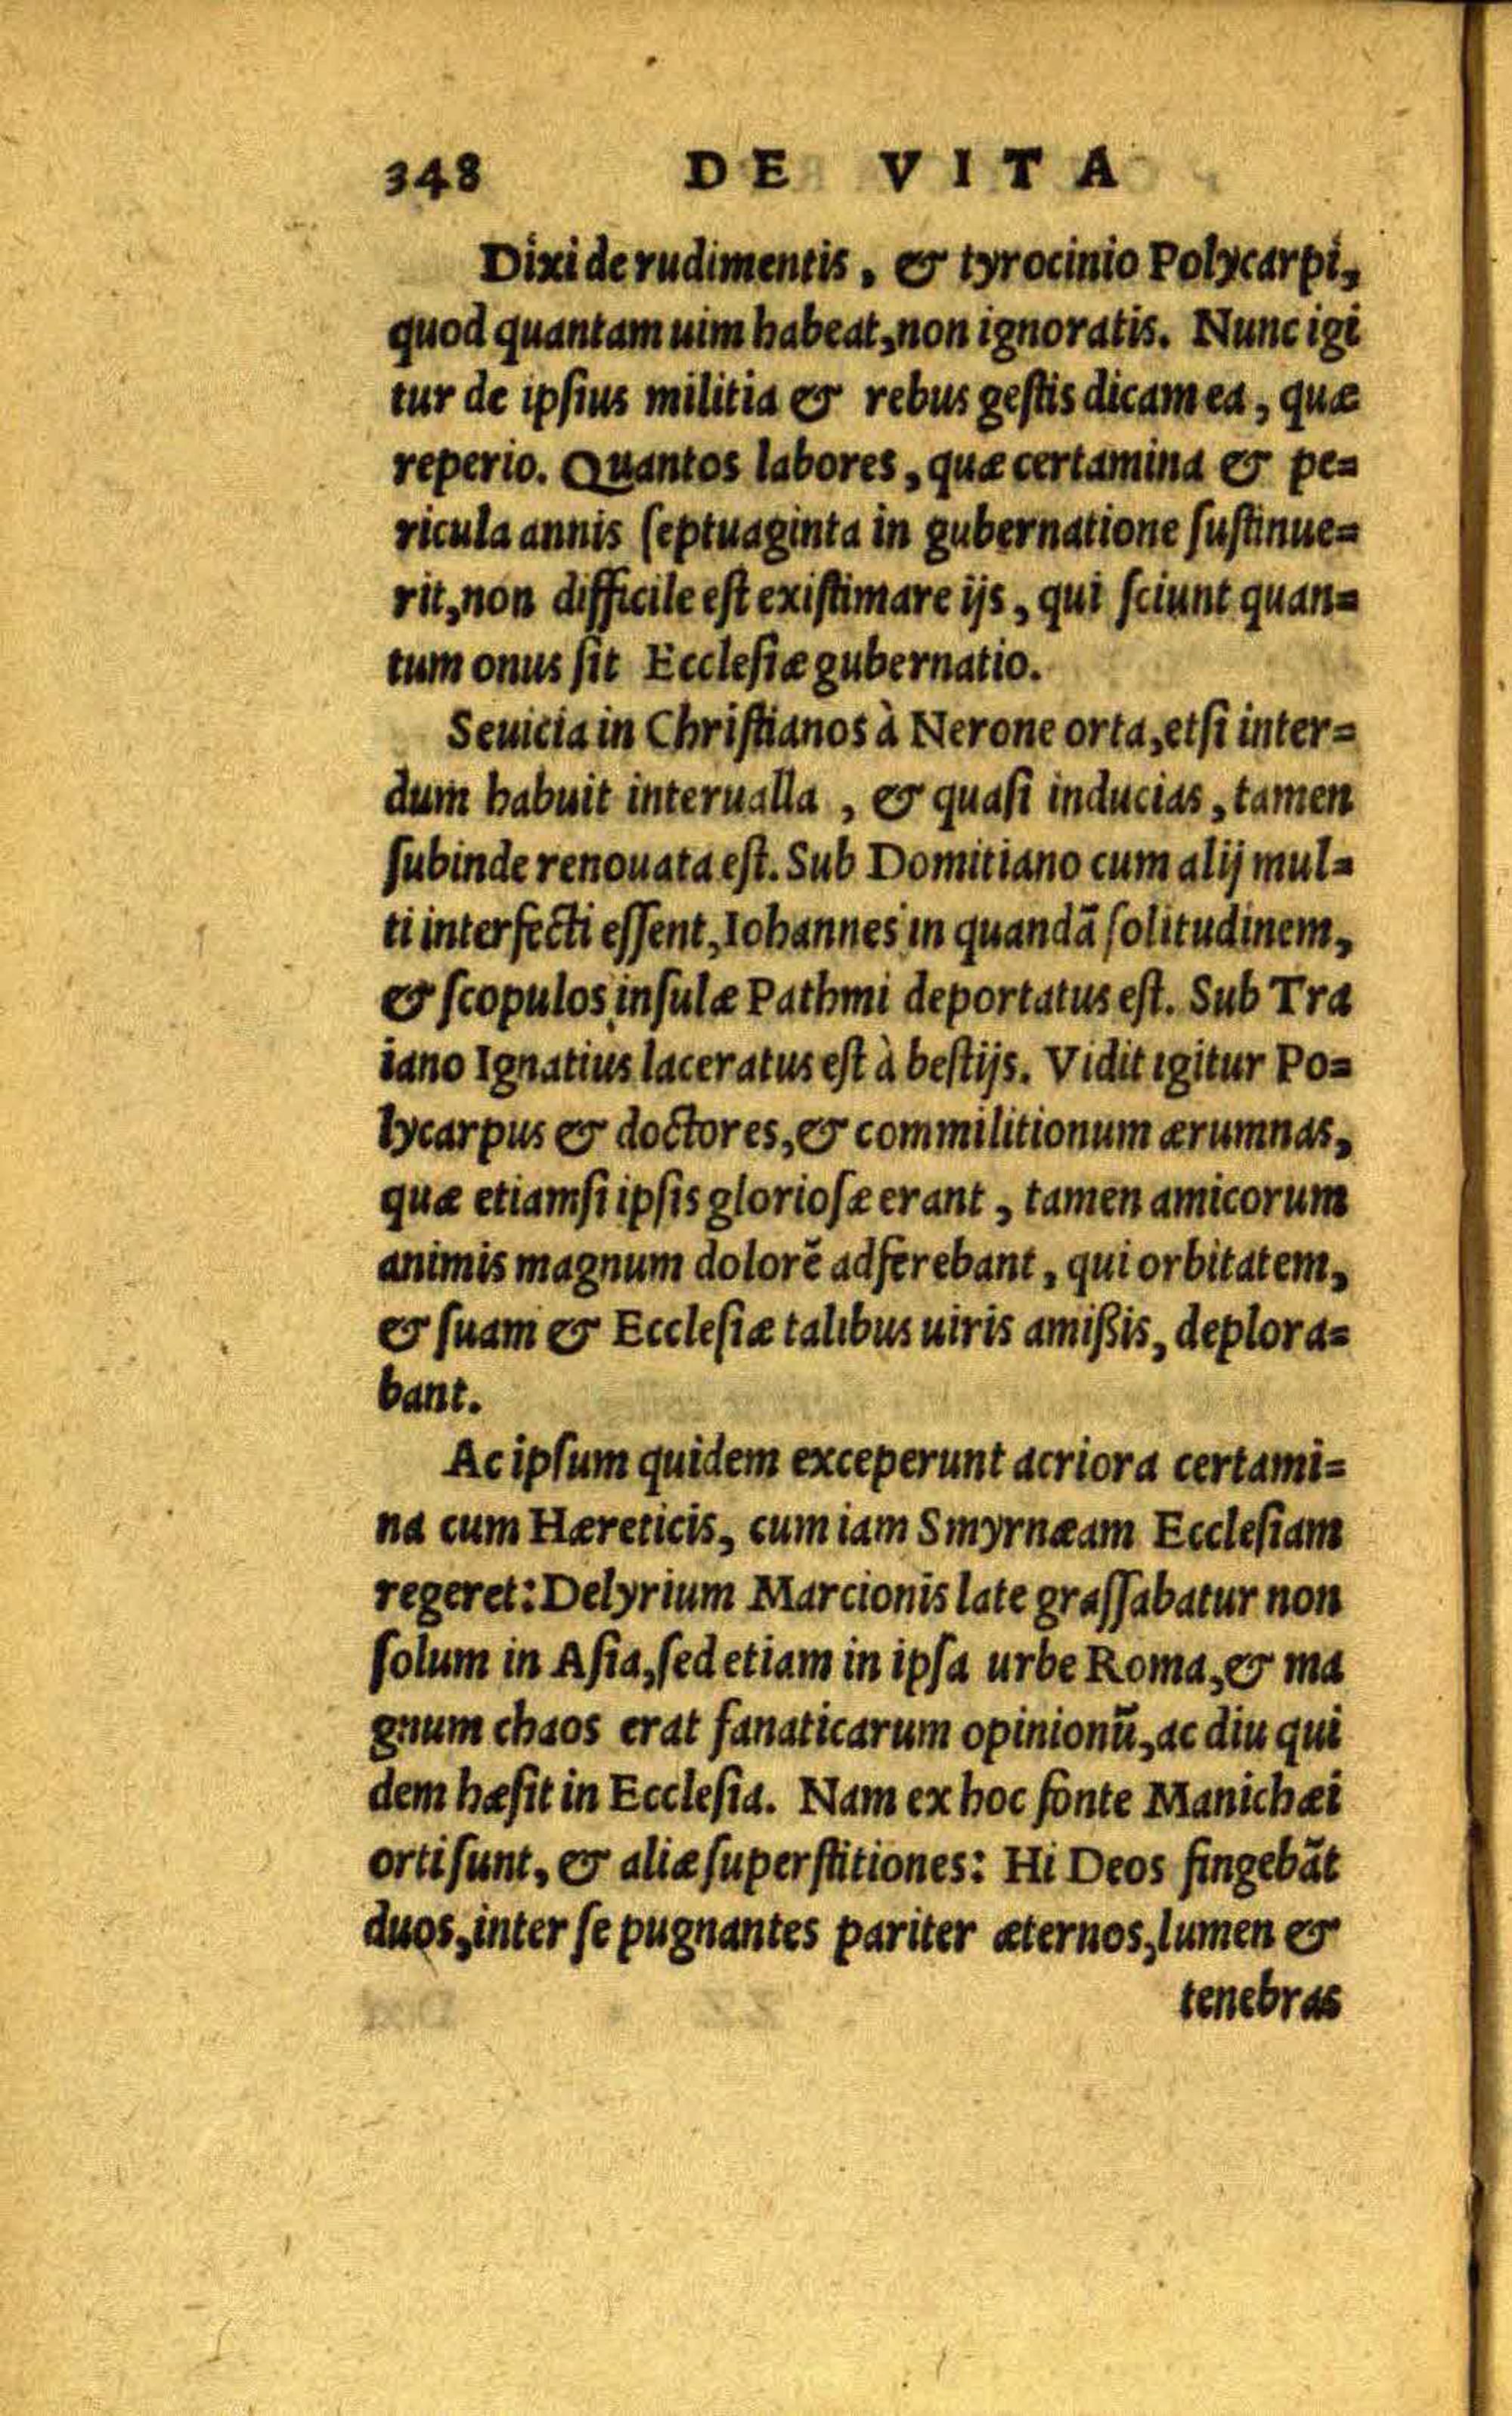 348 DE VITA
Dixi de rudimentis, & tyrocinio Polycarpi,
quod quantam uim habeat, non ignoratis. Nunc igi
tur de ipſius militia & rebus geſtis dicam ea, quæ
reperio. Quantos labores, quæ certamina & pe=
ricula annis ſeptuaginta in gubernatione ſuſtinue=
rit, non difficile eſt exiſtimare ijs, qui ſciunt quan=
tum onus ſit Eccleſiæ gubernatio.
Seuicia in Chriſtianos à Nerone orta, etſi inter=
dum habuit interualla, & quaſi inducias, tamen
ſubinde renouata eſt. Sub Domitiano cum alij mul=
ti interfecti eſſent, Iohannes in quandã ſolitudinem,
& ſcopulos inſulæ Pathmi deportatus eſt. Sub Tra
iano Ignatius laceratus eſt à beſtijs. Vidit igitur Po=
lycarpus & doctores, & commilitionum ærumnas,
quæ etiamſi ipſis glorioſæ erant, tamen amicorum
animis magnum dolorẽ adferebant, qui orbitatem,
& ſuam & Eccleſiæ talibus uiris amißis, deplora=
bant.
Ac ipſum quidem exceperunt acriora certami=
na cum Hæreticis, cum iam Smyrnæam Eccleſiam
regeret: Delyrium Marcionis late graſſabatur non
ſolum in Aſia, ſed etiam in ipſa urbe Roma, & ma
gnum chaos erat fanaticarum opinionũ, ac diu qui
dem hæſit in Eccleſia. Nam ex hoc fonte Manichæi
orti ſunt, & aliæ ſuperſtitiones: Hi Deos fingebãt
duos, inter ſe pugnantes pariter æternos, lumen &
tenebras